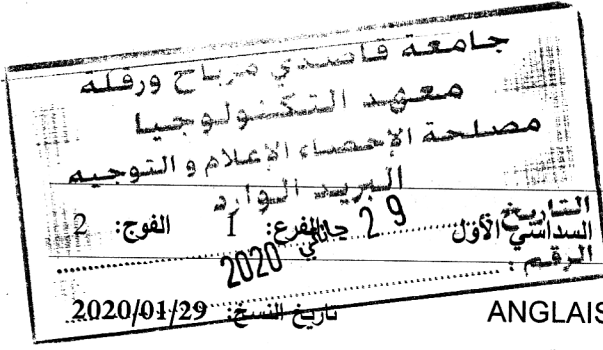 جامعة قاصدي مرباح ورقلة
معهد التكنولوجيا
مصلحة الإحصاء الإعلام و التوجيه
البريد الوارد
التاريخ: 29 جانفي 2020
السداسي الأول الفرع: 1 الفوج: 2
الرقم:
تاريخ النسخ: 2020/01/29
ANGLAIS